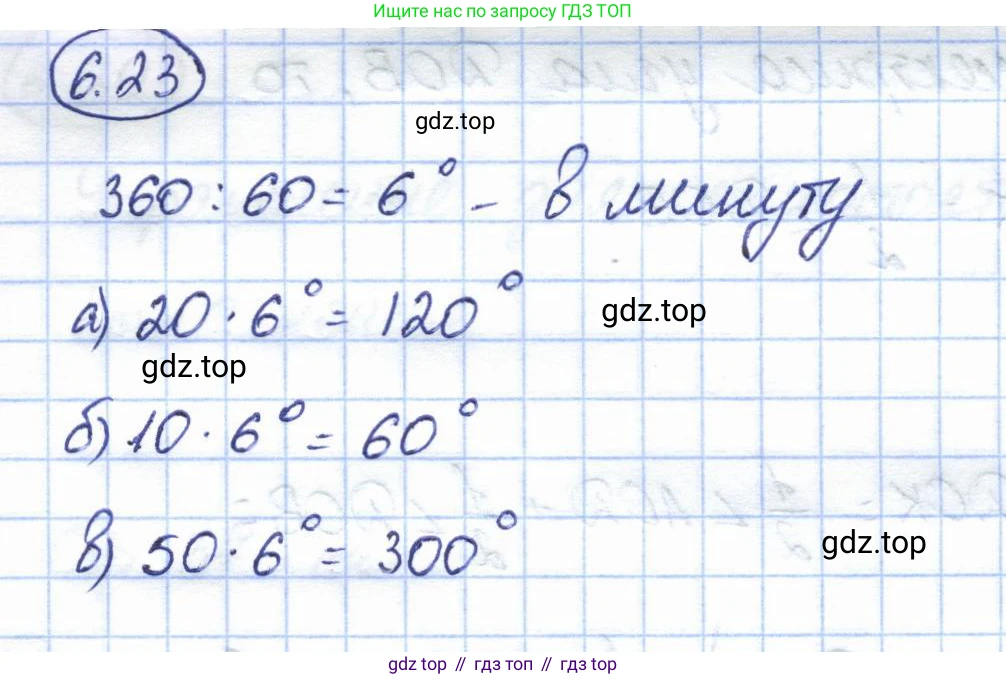 Ищите нас по запросу ГДЗ ТОП
6.23
gdz.top
360 : 60 = 6° - в минуту
а) 20 · 6° = 120°
gdz.top
gdz.top
б) 10 · 6° = 60°
в) 50 · 6° = 300°
gdz.top
gdz top // гдз топ // gdz top